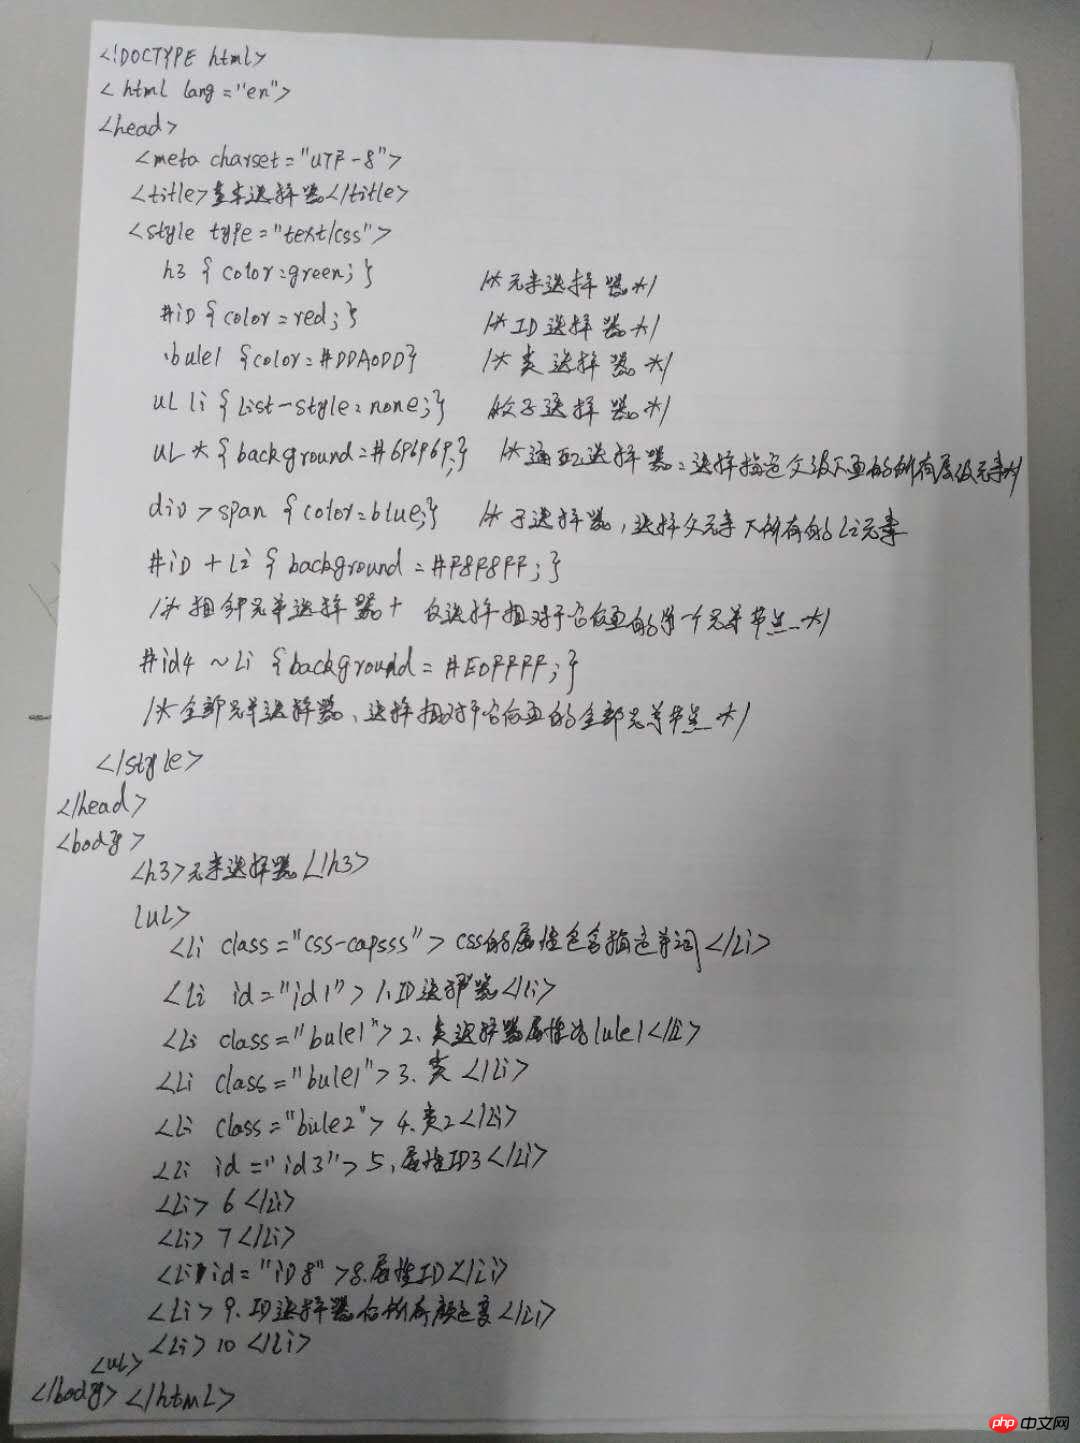 <!DOCTYPE html>
<html lang="en">
<head>
<meta charset="UTF-8">
<title>基本选择器</title>
<style type="text/css">
h3 {color:green;} /*元素选择器*/
#iD {color=red;} /*ID选择器*/
.bule1 {color=#DDA0DD} /*类选择器*/
uL li {List-style:none;} 父子选择器*/
uL * {background=#696969;} /*通配选择器:选择指定父级下面的所有层级元素*/
div > span {color=blue;} /*子选择器,选择父元素下所有的Li元素
#iD + Li {background=#F8F8FF;}
/*相邻兄弟选择器+ 仅选择相对于它后面的第一个兄弟节点*/
#id4 ~ Li {background=#E0FFFF;}
/*全部兄弟选择器、选择相对于它后面的全部兄弟节点*/
</style>
</head>
<body>
<h3>元素选择器</h3>
<uL>
<Li class="css-capsss">css的属性包含指定单词</Li>
<Li id="id1">1.ID选择器</li>
<Li class="bule1">2、类选择器属性为lule1</Li>
<Li class="bule1">3.类</Li>
<Li class="bule2">4.类2</Li>
<Li id="id3">5、属性ID3</Li>
<Li>6</Li>
<Li>7</Li>
<Li id="iD8">8.属性ID</Li>
<Li>9、ID选择器后所有颜色变</Li>
<Li>10</Li>
<uL>
</body></html>
php中文网